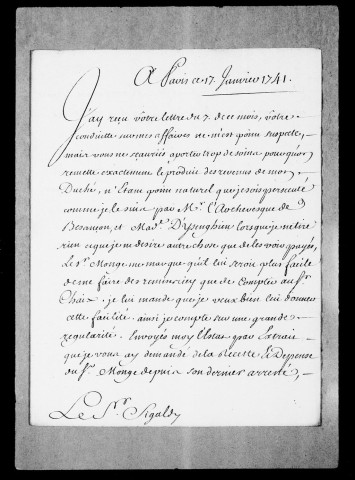 A Paris ce 17. Janvier 1741.
J'ay reçu vôtre lettre du 7. de ce mois, vôtre
conduitte sur mes affaires ne m'est point suspecte,
mais vous ne sçauriés aporter trop de soins pour qu'on
remette exactement le produit des revenus de mon
Duché, n'Etant point naturel que je sois persecuté
comme je le suis par Mr. l'Archevesque de
Besançon, et Made. D'Isenghien lorsque je ne tire
rien et que je ne desire autre chose que de les voir payés,
Le Sr. Monge me marque qu'il lui seroit plus facile
de me faire des remises icy que de Compter au Sr.
Chaix. je lui mande que je veux bien lui donner
cette facilité. ainsi je compte sur une grande
regularité. Envoyés moy l'Estat par Extrait
que je vous ay demandé de la Recette Et Depense
du Sr. Monge depuis son dernier arresté,
Le Sr. Sigaldy